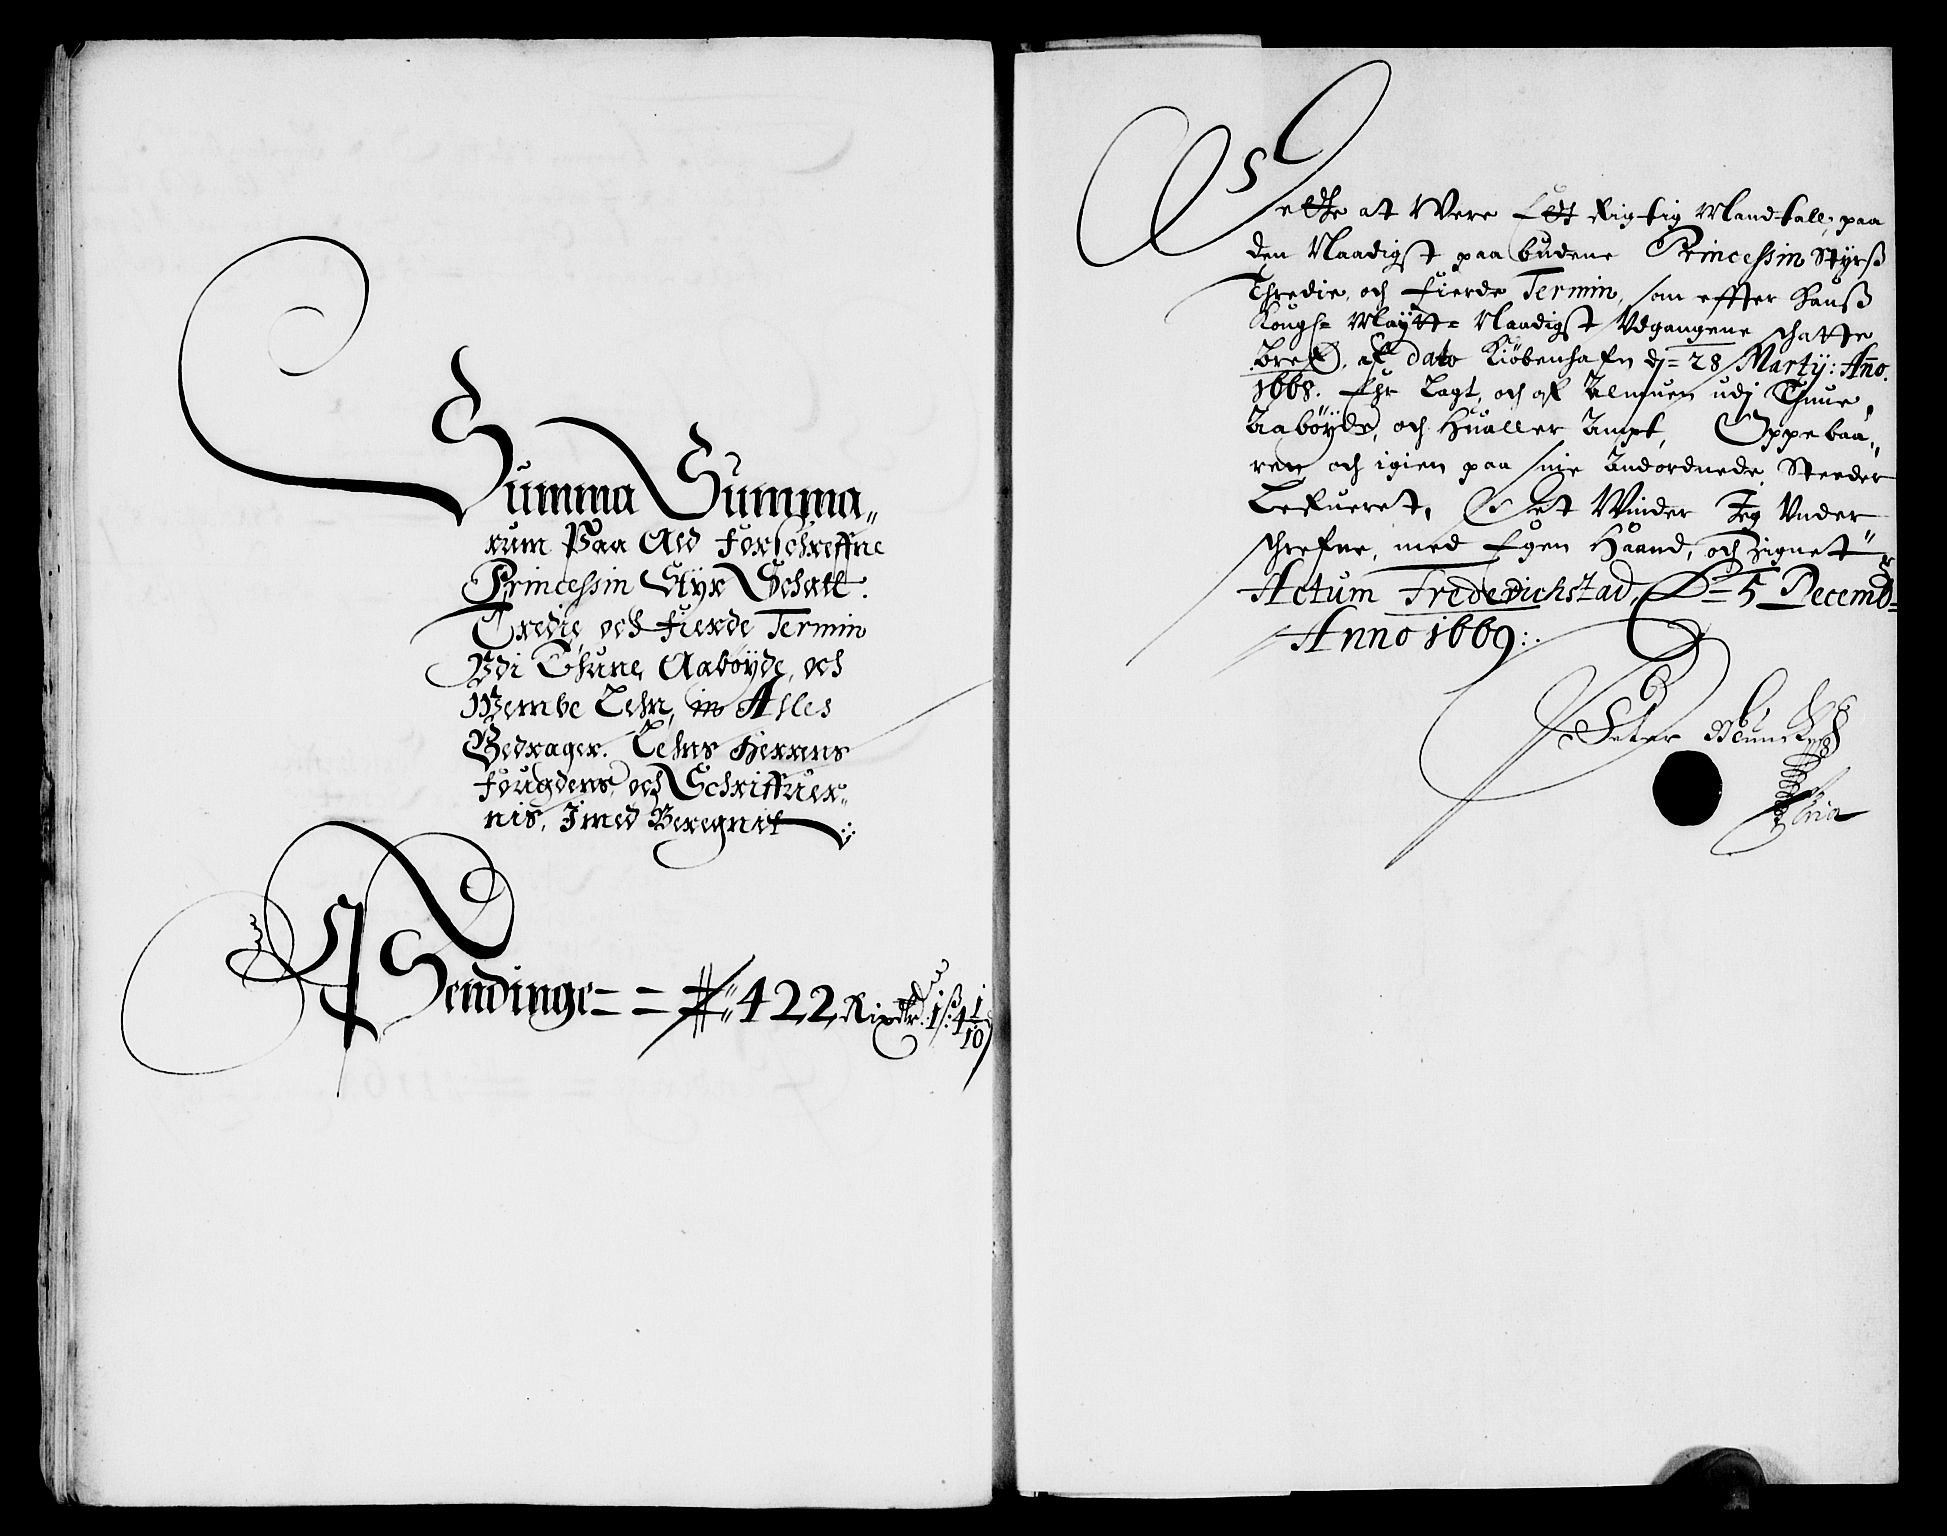 Summa Summa„
rum Paa Ald forschreffne
Princessin Styr Schatt.
Tredie och fierde Termin
Vdi Thune, Aabøyde, och
Wembe Lehn, in Alles
Bedrager. Lehns Herrens
fougdens, och Schriffuer„
nis, Imed Beregnet
Pendinge = = 422 Rixdlr. 1 ß 4 1/10
Dette at Were Edt Rigtig Mandtall, paa
den Naadigst paabudene Princessin Styrß
Thredie, och fierde Termin, som effter hanß
Kongl= Maÿtt= Naadigst Udgangene schatte
bref, af dato Kiöbenhafn dj= 28 Martij: Ano.
1668. Ehr Lagt, och af Almuen udj Thune,
Aabÿyde, och Hualler Ampt, Oppebaa„
ren och igien paa sine Andordnede Steeder
Lefueret, Det Winder Jeg Vnder
schrefne, med Egen Haand, och Zignet"
Actum Frederichstad, D= 5 Decembr=
Anno 1669:.
Peter